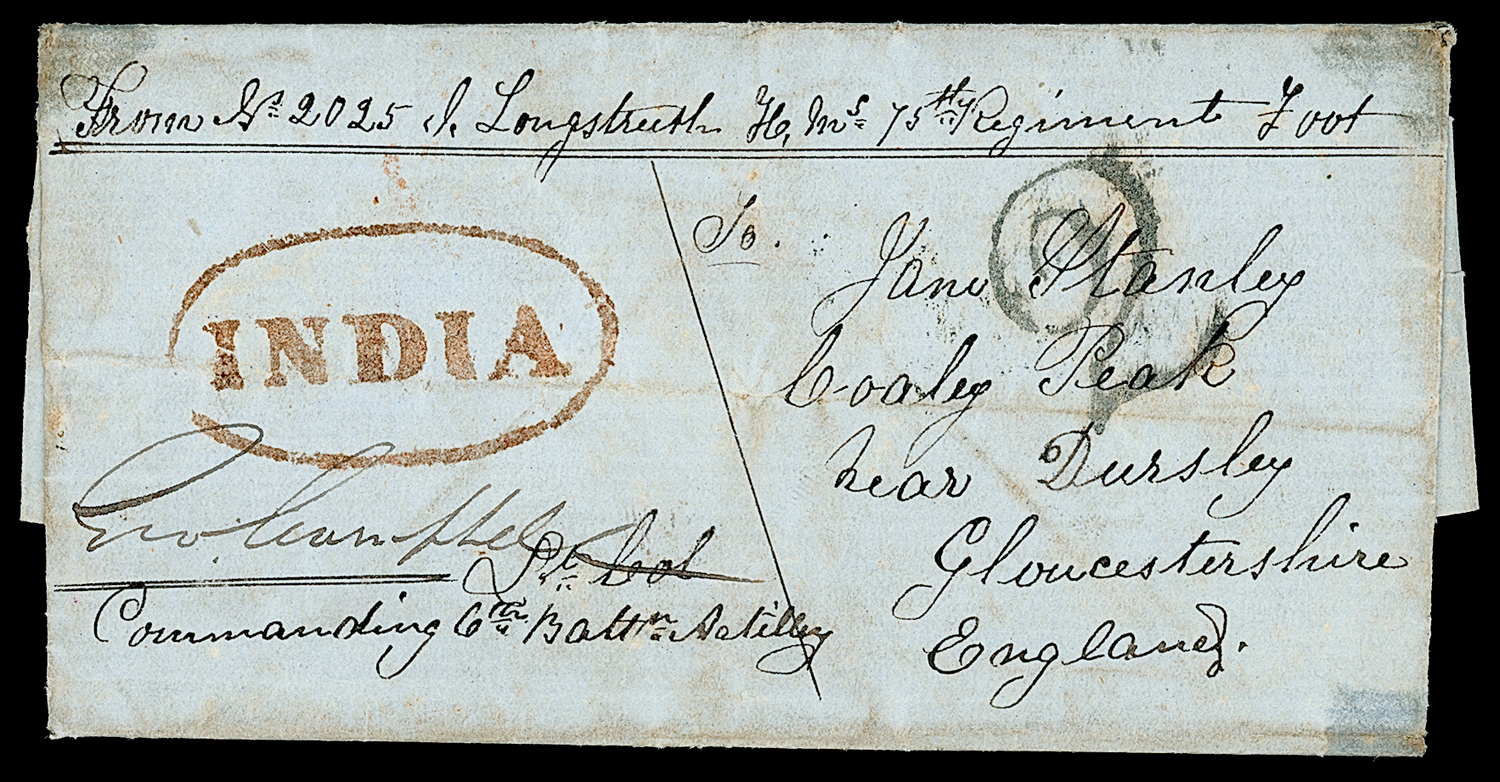 From No. 2025 J. Longstreeth H. Ms. 75th Regiment Foot
INDIA
To.
Jane Stanley
Cooley Peak
near Dursley
Gloucestershire
England.
Geo Campbell
Lt. Col
Commanding 6th Battn. Artillery
2